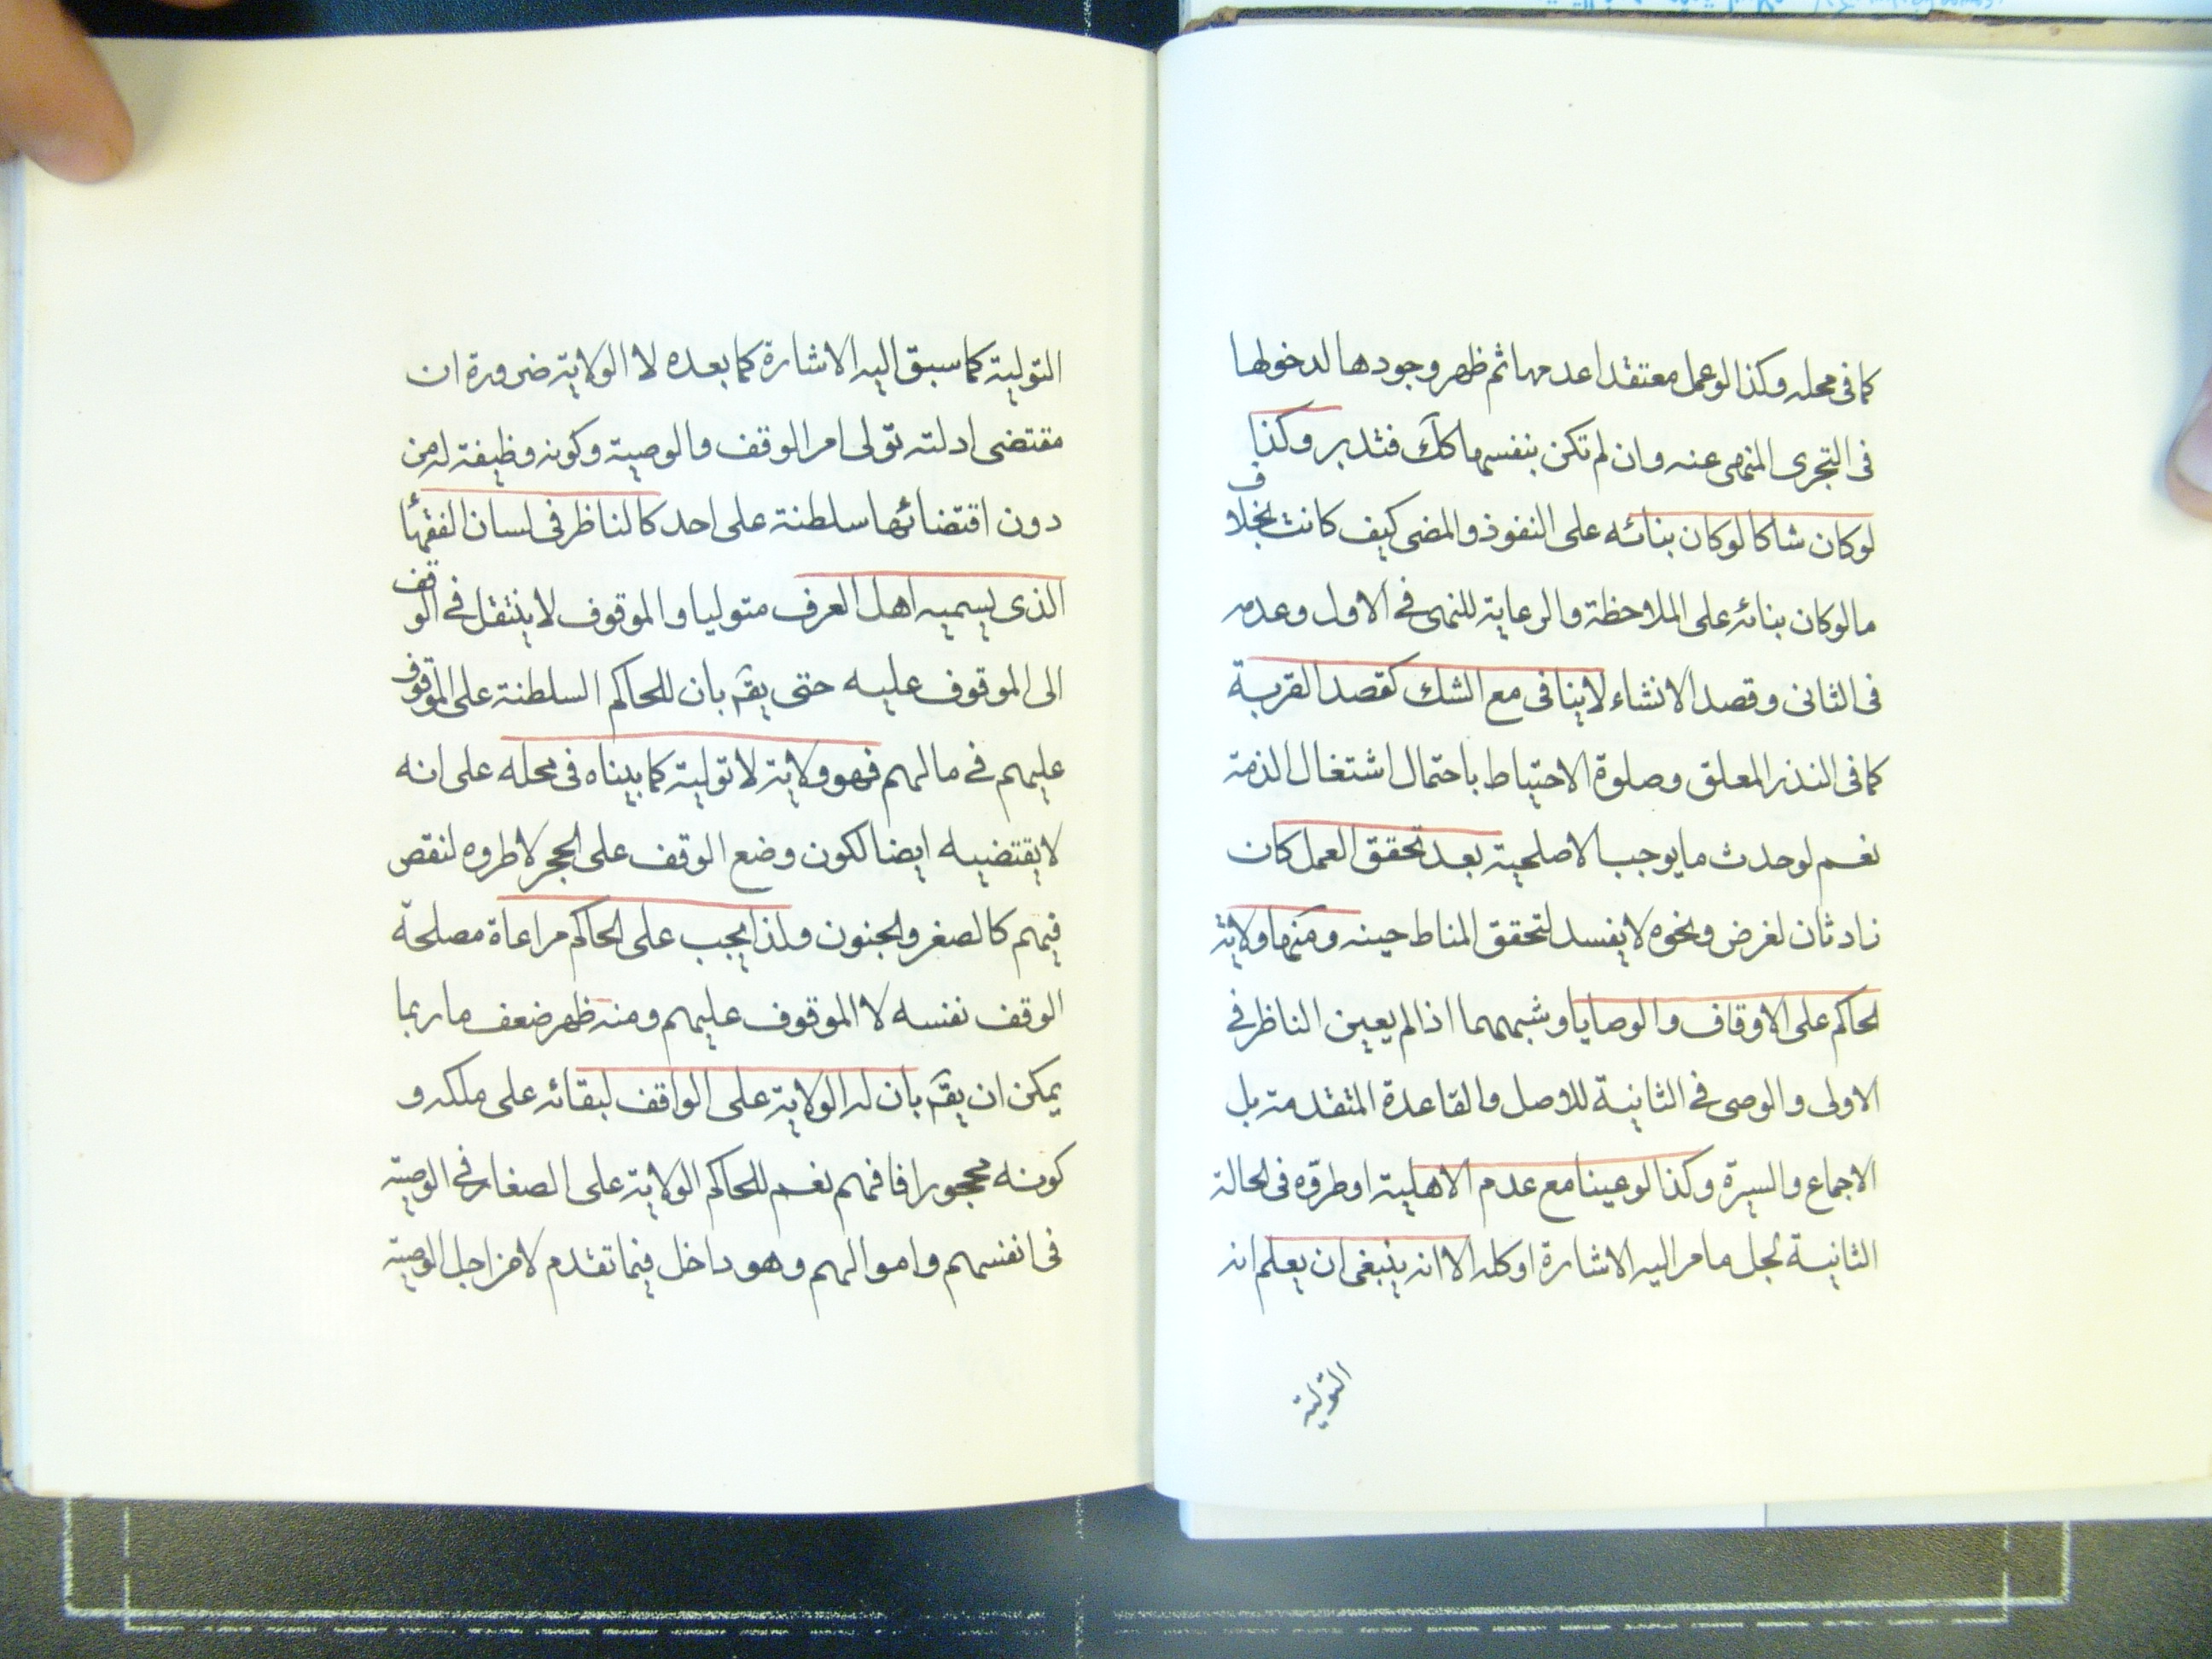 كما فى محله وكذا لو عمل معتقدا عدمها ثم ظهر وجودها لدخولها
فى التجرى المنهى عنه وان لم تكن بنفسها كك فتدبر وكذا
لو كان شاكا لو كان بنائه على النفوذ والمضى كيف كانت بخلاف
ما لو كان بنائه على الملاحظة والرعاية للنهى فى الاول وعدمه
فى الثانى وقصد الانشاء لا ينافى مع الشك كقصد القربة
كما فى النذر المعلق وصلوة الاحتياط باحتمال اشتغال الذمة
نعم لو حدث ما يوجب الاصلحية بعد تحقق العمل كان
زاد ثان لغرض ونحوه لا يفسد لتحقق المناط حينه ومنها ولاية
الحاكم على الاوقاف والوصايا وشبههما اذا لم يعين الناظر فى
الاولى والوصى فى الثانية للاصل والقاعدة المتقدمة بل
الاجماع والسيرة وكذا لو عينا مع عدم الاهلية او طروه فى الحالة
الثانية لجل ما مر اليه الاشارة او كله الا انه ينبغى ان يعلم انه
التولية
التولية كما سبق اليه الاشارة كما بعده لا الولاية ضرورة ان
مقتضى ادلته تولى امر الوقف والوصية وكونه وظيفة له من
دون اقتضائها سلطنة على احد كالناظر فى لسان الفقهاء
الذى يسميه اهل العرف متوليا والموقوف لا ينتقل فى الوقف
الى الموقوف عليه حتى يقه بان للحاكم السلطنة على الموقوف
عليهم فى مالهم فهو ولاية لا تولية كما بيناه فى محله على انه
لا يقتضيه ايضا لكون وضع الوقف على الحجر لا طروه لنقص
فيهم كالصغر والجنون ولذا يجب على الحاكم مراعاة مصلحة
الوقف نفسه لا الموقوف عليهم ومنه ظهر ضعف ما ربما
يمكن ان يقه بان له الولاية على الواقف لبقائه على ملكه و
كونه محجورا فافهم نعم للحاكم الولاية على الصغار فى الوصية
فى انفسهم واموالهم وهو داخل فيما تقدم لا من اجل الوصية